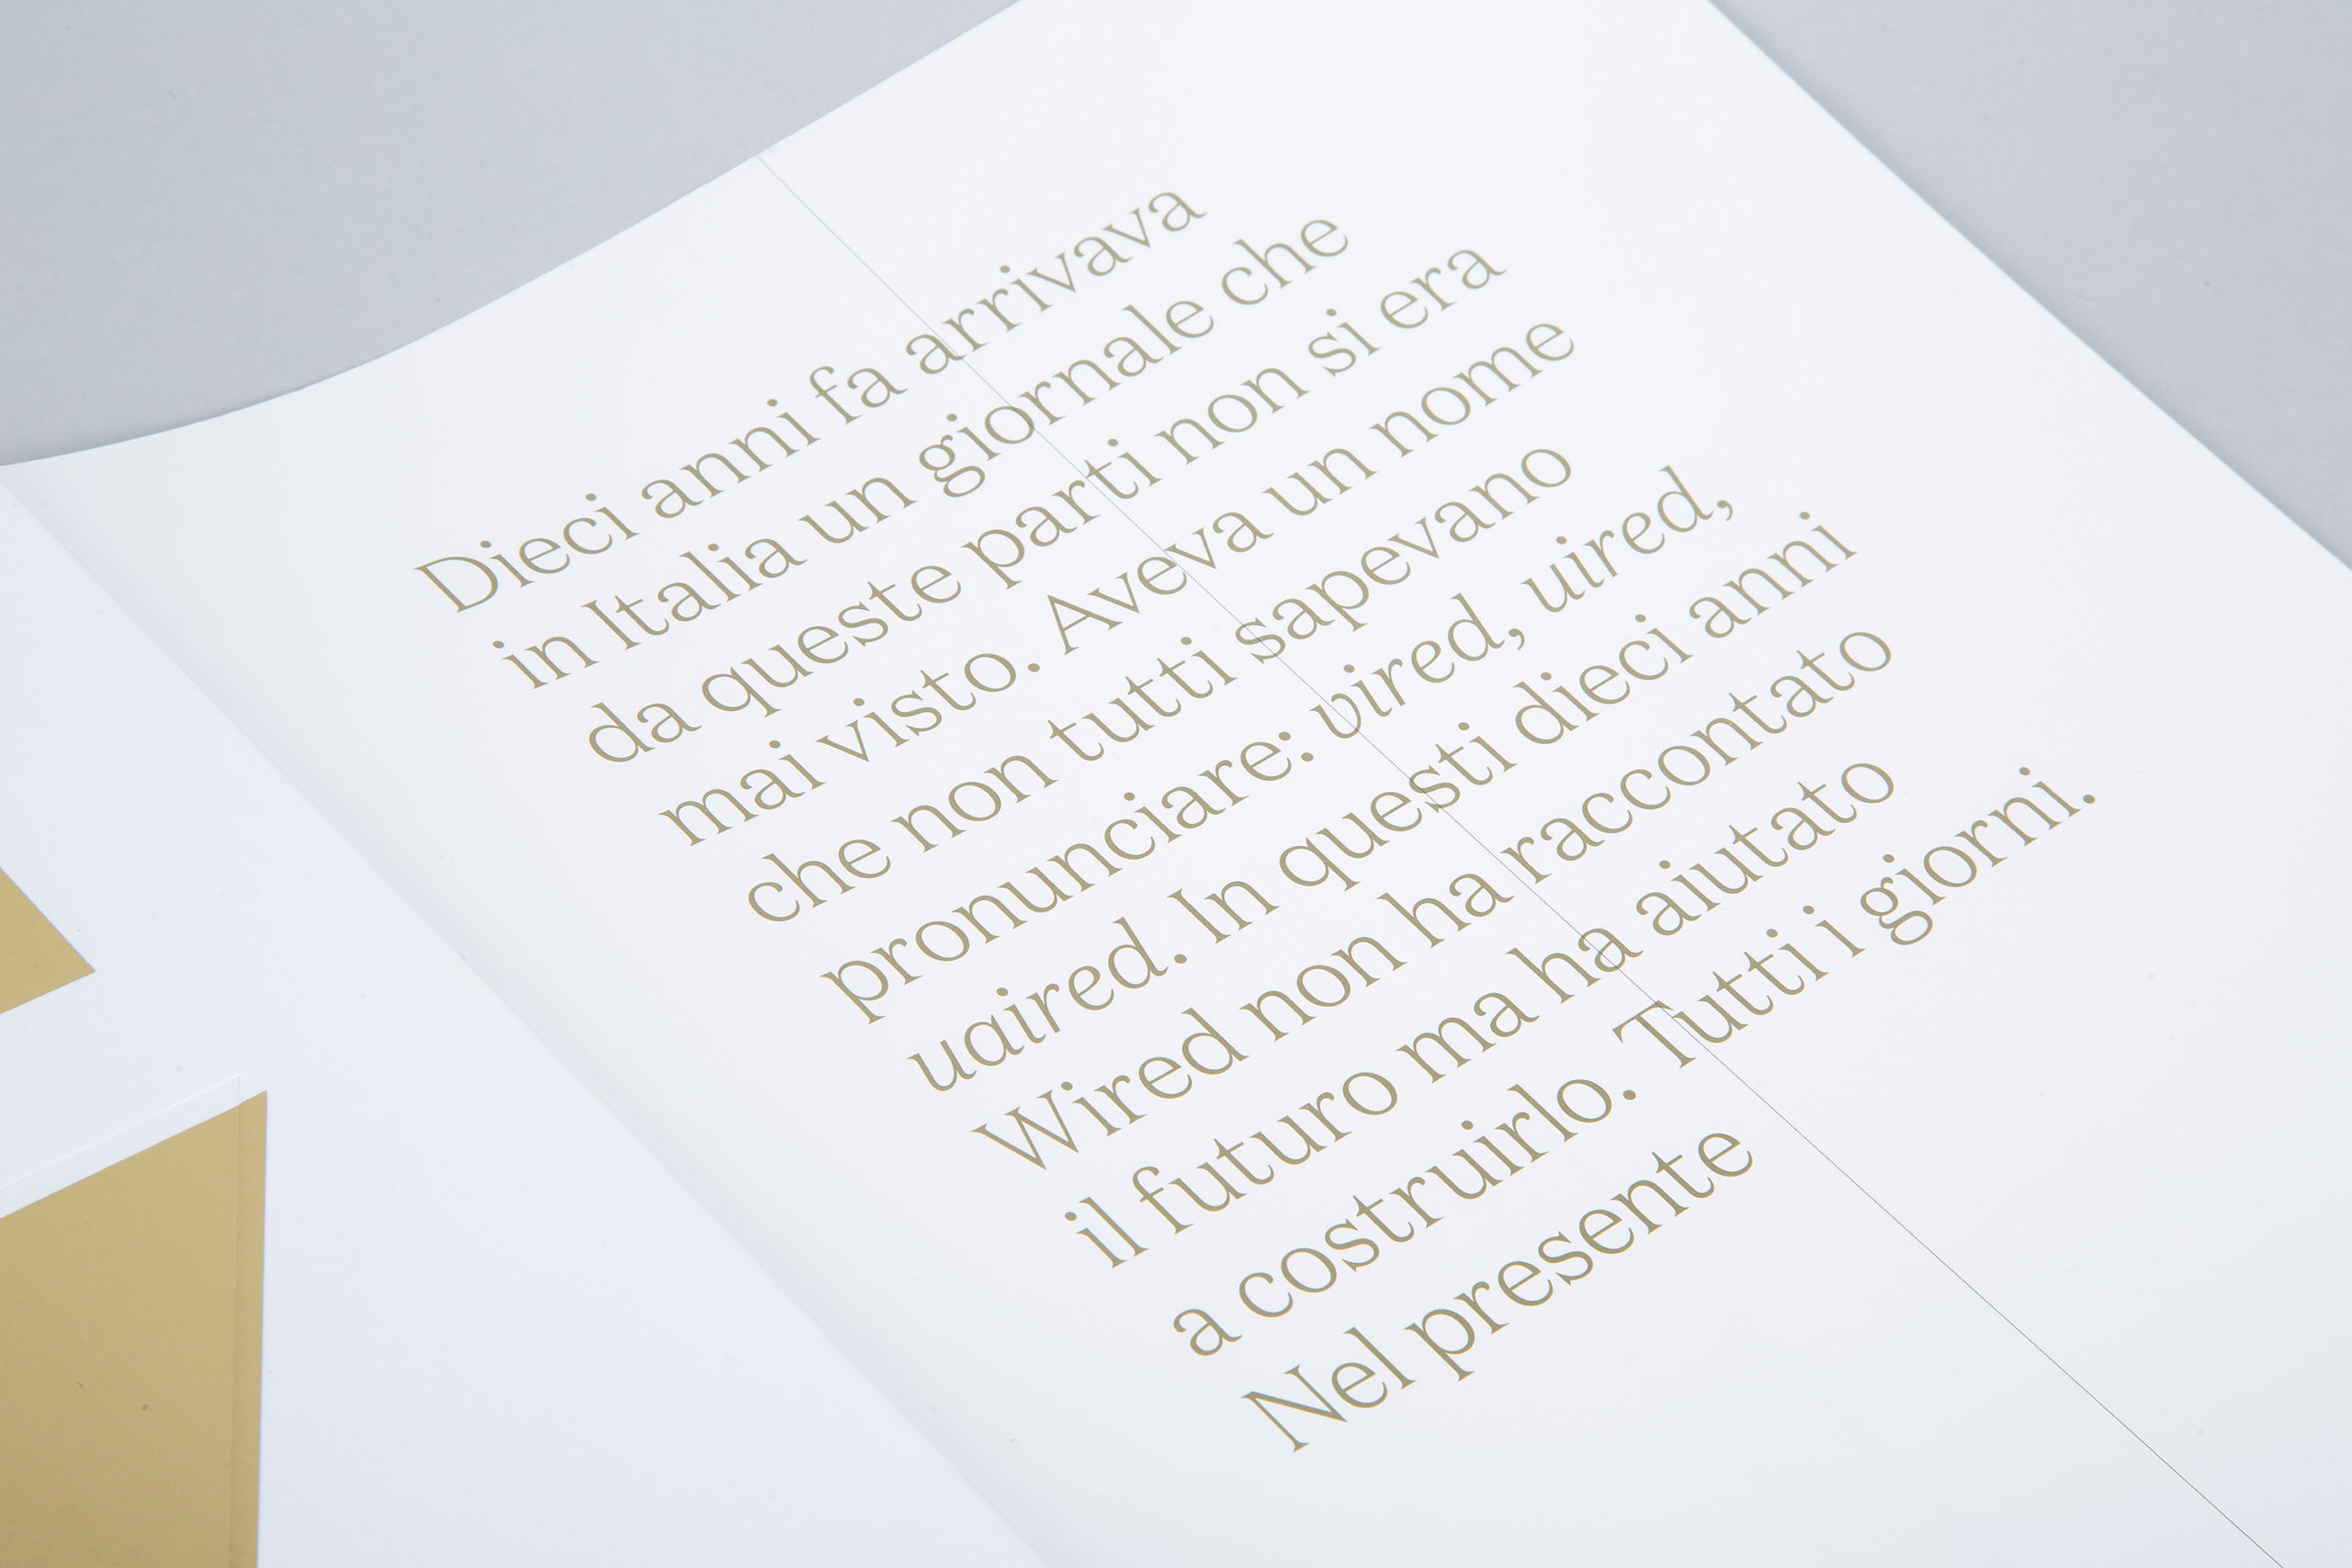 Dieci anni fa arrivava
in Italia un giornale che
da queste parti non si era
mai visto. Aveva un nome
che non tutti sapevano
pronunciare: vired, uired,
uaired. In questi dieci anni
Wired non ha raccontato
il futuro ma ha aiutato
a costruirlo. Tutti i giorni.
Nel presente